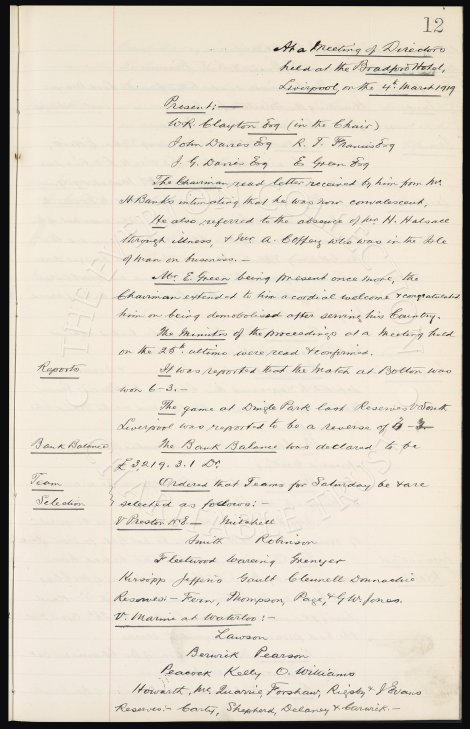 12
At a Meeting of Directors
held at the Bradford Hotel,
Liverpool, on the 4th March 1919
Present:—
W.R. Clayton Esq (in the Chair)
John Davies Esq R. J. Francis Esq
J. G. Davies Esq E Green Esq
The Chairman read letter received by him from Mr
H Banks intimating that he was now convalescent,
He also referred to the absence of Mr H. Halsall
through illness, & Mr A. Coffey who was in the Isle
of Man on business. —
Mr. E. Green being present once more, the
Chairman extended to him a cordial welcome & congratulated
him on being demobolised after serving his Country.
The Minutes of the proceedings at a Meeting held
on the 25th ultimo were read & confirmed.
Reports It was reported that the match at Bolton was
won 6-3. —
The game at Dingle Park last Reserves v South
Liverpool was reported to be a reverse of
Bank Balance The Bank Balance was declared to be
£3219.3.1 Dr.
Team Ordered that Teams for Saturday be & are
Selection selected as follows:—
V Preston N.E — Mitchell
Smith Robinson
Fleetwood Wareing Grenyer
Kirsopp Jefferis Gault Clennell Donnachie
Reserves:— Fern, Thompson, Page, & G.W. Jones.
V. Marine at Waterloo:—
Lawson
Berwick Pearson
Peacock Kelly O. Williams
Howarth, Mc Quarrie, Forshaw, Rigsby & J Evans
Reserves:— Carty, Shepherd, Delaney & Curwick. —